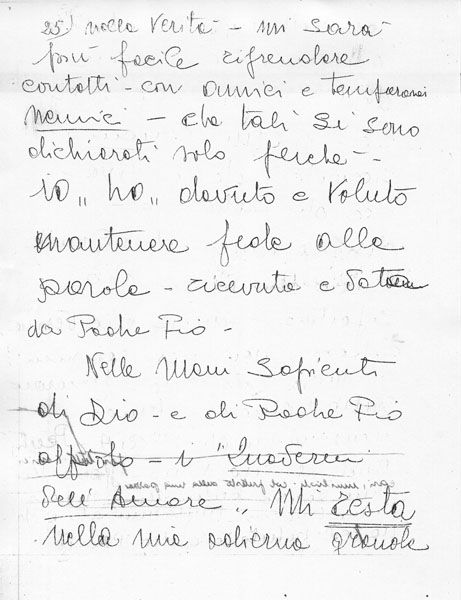 25) nella Verità - mi sarà
più facile riprendere
contatti - con amici e temporanei
nemici - che tali si sono
dichiarati solo perché -
io "ho" dovuto e voluto
mantenere fede alla
parola - ricevuta e data
da Padre Pio -
Nelle Mani Sapienti
di Dio - e di Padre Pio
affido - i "Quaderni
dell'Amore" Mi resta
nella mia odierna grande